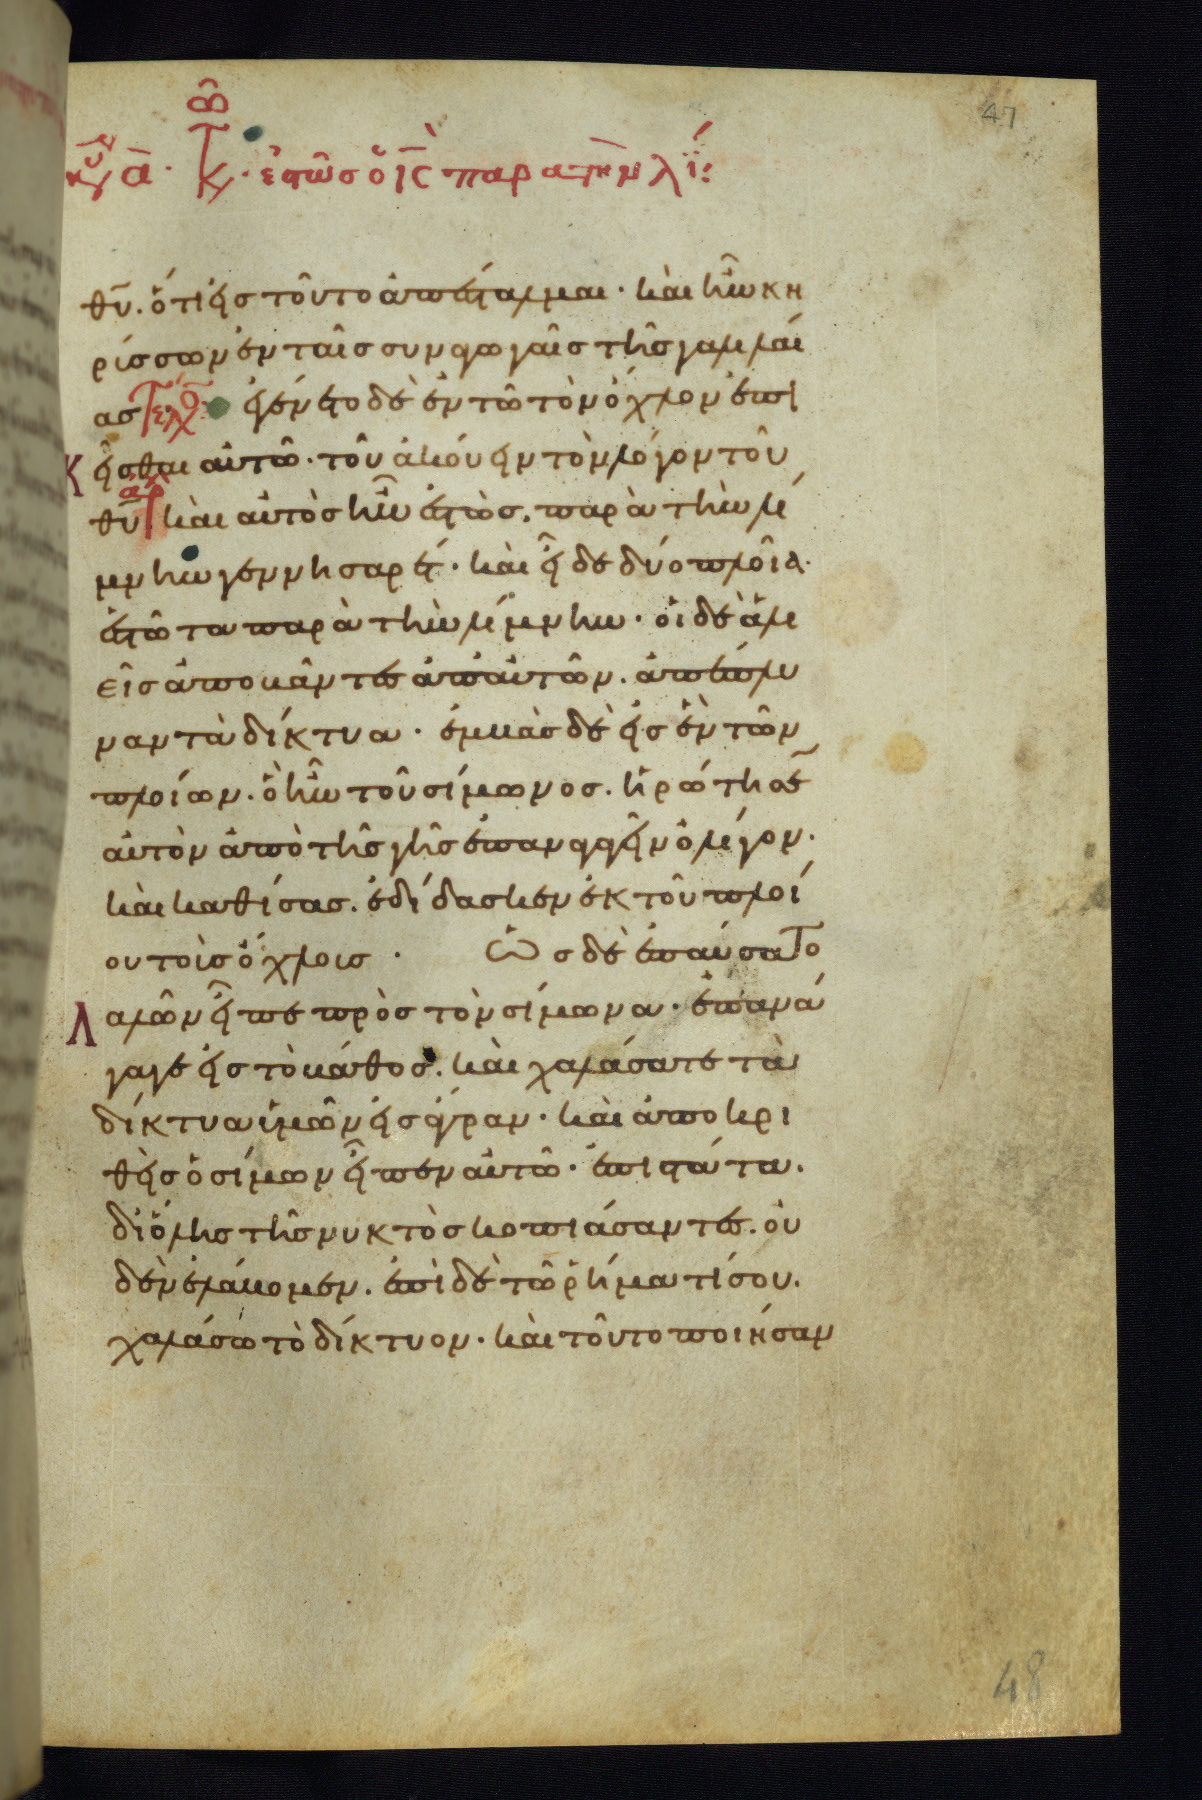 47
κυ α̅ · β̅ κ, · ἑστὼς ὁ ι̅ς̅ παρὰ τὴν λί:
θυ̅. ὅτι εἰς τοῦτο ἀπέσταλμαι · καὶ ἦν κη
ρίσσων ἐν ταῖς συναγωγαῖς τῆς γαλιλαί
ας τελ ἐγένετο δὲ ἐν τῶ τὸν ὄχλον ἐπι
κεῖσθαι αὐτῶ · τοῦ ἀκούειν τὸν λόγον τοῦ
θυ̅ ἀρχ καὶ αὐτὸς ἦν ἑστὼς. παρὰ τὴν λί
μνην γεννησαρέτ · καὶ εἶδε δύο πλοῖα.
ἑστῶτα παρὰ τὴν λίμνην · οἱ δὲ ἁλι
εῖς ἀποβάντες ἀπ᾽ αὐτῶν. ἀπέπλυ
ναν τὰ δίκτυα · ἐμβὰς δὲ εἰς ἓν τῶν
πλοίων. ὃ ἦν τοῦ σίμωνος. ἠρώτησε̅
αὐτὸν ἀπὸ τῆς γῆς ἐπαναγαγεῖν ὀλίγον.
καὶ καθίσας. ἐδίδασκεν ἐκ τοῦ πλοί
ου τοὺς ὄχλους · Ὡς δὲ ἐπαύσατο
λαλῶν εἶπε πρὸς τὸν σίμωνα · ἐπανά
γαγε εἰς τὸ βάθος. καὶ χαλάσατε τὰ
δίκτυα ὑμῶν εἰς ἄγραν · καὶ ἀποκρι
θεὶς ὁ σίμων εἶπεν αὐτῶ · ἐπιστάτα.
δι᾽ ὅλης τῆς νυκτὸς κοπιάσαντες. οὐ
δὲν ἐλάβομεν. ἐπὶ δὲ τῶ ῥήματί σου.
χαλάσω τὸ δίκτυον · καὶ τοῦτο ποιήσαν
48